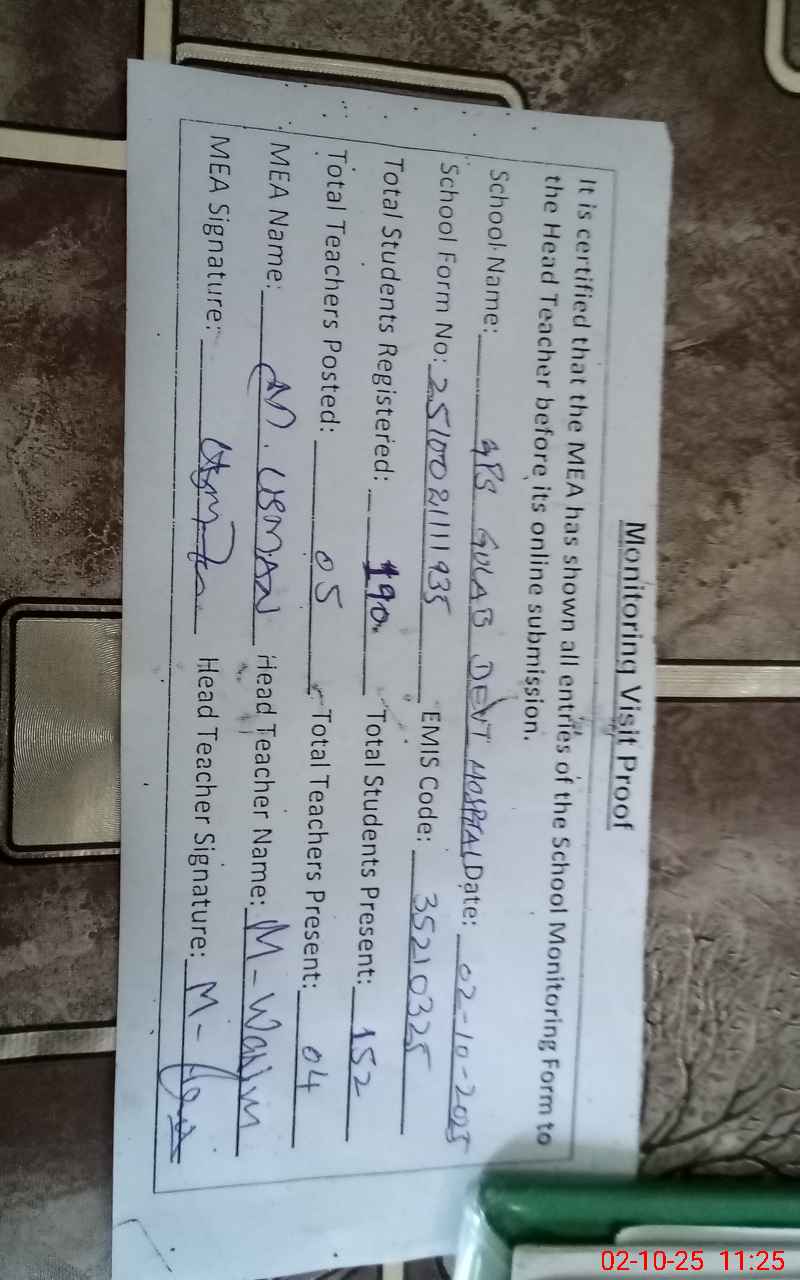 Monitoring Visit Proof
It is certified that the MEA has shown all entries of the School Monitoring Form to
the Head Teacher before its online submission.
School Name: GPS GULAB DEVI HOSPITAL Date: 02-10-2025
School Form No: 251002111935 EMIS Code: 35210325
Total Students Registered: 190 Total Students Present: 152
Total Teachers Posted: 05 Total Teachers Present: 04
MEA Name: M. USMAN Head Teacher Name: M-Wasim
MEA Signature: Head Teacher Signature: M-
02-10-25 11:25